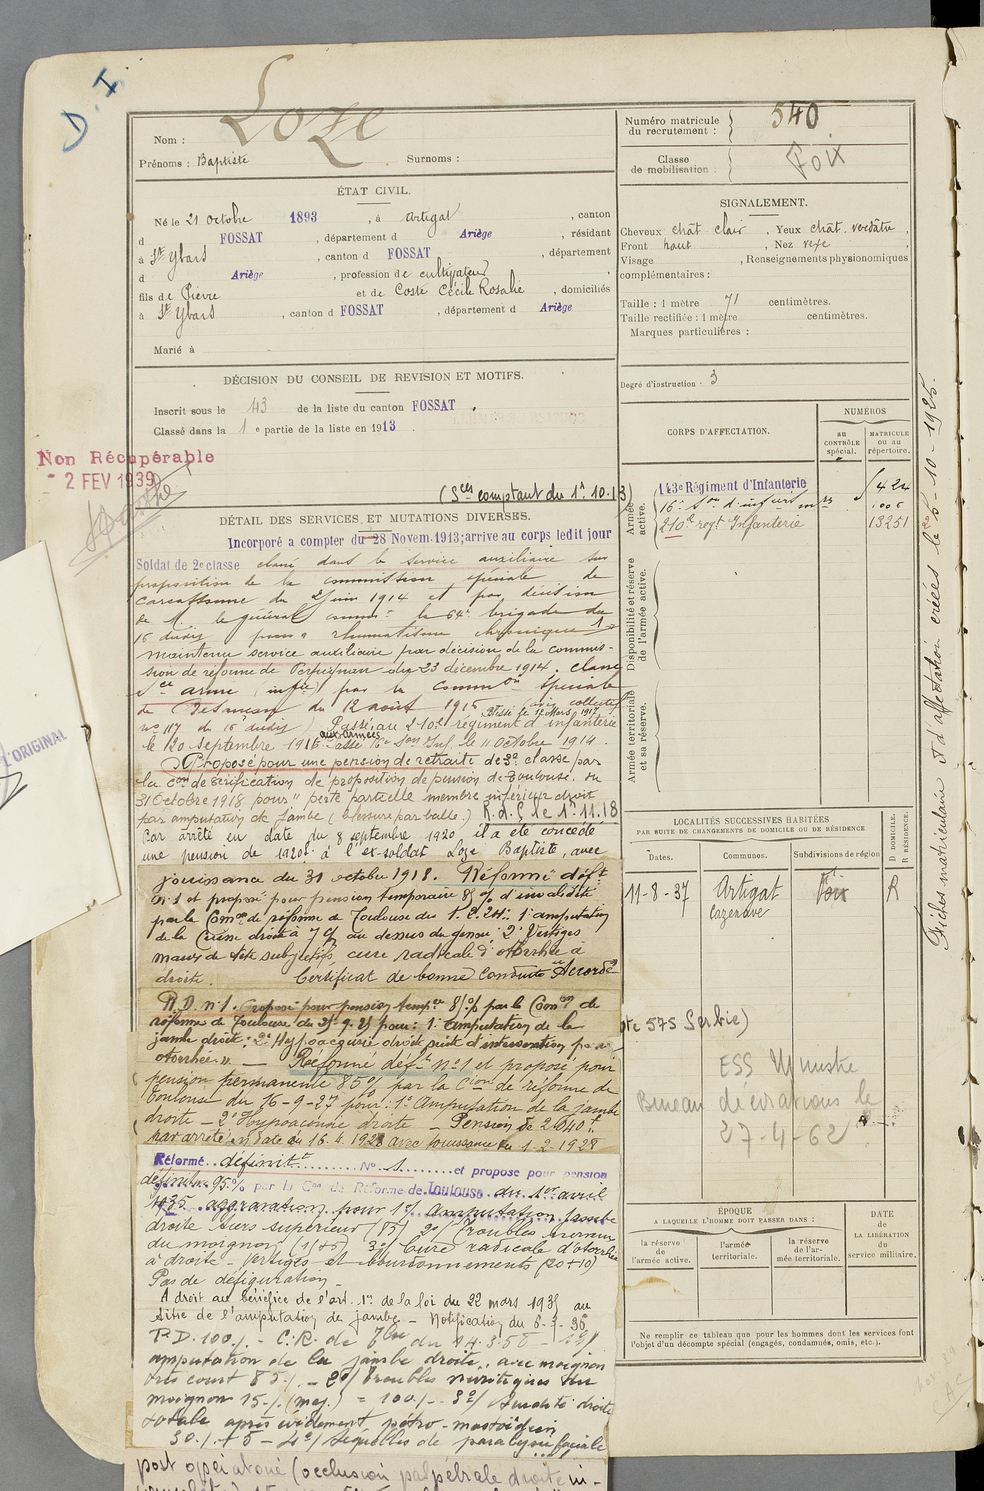 D. I
Loze
Nom :
Prénoms : Baptiste Surnoms :
Numéro matricule du recrutement : 540
Classe de mobilisation : Foix
ÉTAT CIVIL.
Né le 21 octobre 1893, à Artigat, canton
d FOSSAT, département d Ariège, résidant
à St Ybars, canton d FOSSAT, département
d Ariège, profession de cultivateur
fils de Pierre et de Coste Cécile Rosalie, domiciliés
à St Ybars, canton d FOSSAT, département d Ariège
Marié à
SIGNALEMENT.
Cheveux chât clair, Yeux chât. verdâtre,
Front haut, Nez vexe,
Visage , Renseignements physionomiques
complémentaires :
Taille : 1 mètre 71 centimètres.
Taille rectifiée : 1 mètre centimètres.
Marques particulières :
Degré d'instruction : 3
DÉCISION DU CONSEIL DE REVISION ET MOTIFS.
Inscrit sous le 43 de la liste du canton FOSSAT.
Classé dans la 1e partie de la liste en 1913.
Non Récupérable
- 2 FEV 1939
(Sces comptant du 1r. 10. 13)
DÉTAIL DES SERVICES ET MUTATIONS DIVERSES.
Incorporé a compter du 28 Novem. 1913; arrive au corps ledit jour
Soldat de 2e classe classé dans le service auxiliaire sur
proposition de la commission spéciale de
Carcassonne du 2 juin 1914 et par décision
de M. le général comm. la 64e brigade du
16 dudit pour rhumatisme chronique
maintenu service auxiliaire par décision de la commis-
sion de réforme de Perpignan du 23 décembre 1914. Classé
par la Common Spéciale
de Besançon du 12 août 1916 avis collectif
no 117 du 16 dudit) Passé au 210e régiment d'infanterie
aux armées
le 20 septembre 1916. Passé 16e Son Inf. le 11 octobre 1914.
Proposé pour une pension de retraite de 3e classe par
la Con de vérification de proposition de pension de Toulouse du
31 octobre 1918 pour "perte partielle membre inférieur droit
par amputation de jambe (blessure par balle.) R.d.f le 1r. 11. 18
Par arrêté en date du 8 septembre 1920, il a été concédé
une pension de 1920f à l'ex-soldat Loze Baptiste, avec
jouissance du 31 octobre 1918. Réformé déft
n: 1 et proposé pour pension temporaire 85 % d'invalidité
par la Comon de réforme de Toulouse du
de la Cuisse droite à 7 c/ au dessus du genou. 2° Vertiges
maux de tête subjectifs, cure radicale d'otorrhée à
droite. Certificat de bonne Conduite Accordé
R.D. n: 1. Proposé pour pension tempre 85% par la Comon de
réforme de Toulouse du 25. 9. 25 pour: 1° amputation de la
jambe droite; 2° Hypoacousie droite suite d'intervention pour
otorrhée. — Réformé déft no 1 et proposé pour
pension permanente 85% par la Cion de réforme de
Toulouse du 16-9-27 pour: 1° Amputation de la jambe
droite - 2° Hypoacousie droite - Pension de 2.040 f
par arrêté en date du 16. 4. 1928 avec jouissance du 1. 2. 1928
Réformé définitt No 1 et propose pour pension
définitive 95% par la Con de Réforme de Toulouse du 1er avril
1935 aggravation pour 1°/ amputation jambe
droite tiers supérieur (85) 2°/ Troubles
du moignon 3°/ Cure radicale d'otorrhée
à droite - vertiges et bourdonnements (20+10)
Pas de défiguration -
A droit au bénéfice de l'art. 1er de la loi du 22 mars 1935 au
titre de l'amputation de jambe - Notification du 6-3-36
P.D. 100% - C.R. de Tlse du 24.3.50 - 1°/
amputation de la jambe droite, avec moignon
très court 85% - 2°/ troubles névritiques du
moignon 15% (maj.) = 100% - 3°/ Surdité droite
totale après évidement pétro-mastoïdien
30% + 5 - 4°/ séquelles de paralysie faciale
post opératoire (occlusion palpébrale droite in-
L'ORIGINAL
CORPS D'AFFECTATION.
NUMÉROS
au CONTRÔLE spécial.
MATRICULE ou au répertoire.
Armée active.
143e Régiment d'Infanterie 424
16e Son d'infirm. mres 1006
210e regt Infanterie 13251
Disponibilité et réserve de l'armée active.
Armée territoriale et sa réserve.
LOCALITÉS SUCCESSIVES HABITÉES
PAR SUITE DE CHANGEMENTS DE DOMICILE OU DE RÉSIDENCE
Dates. Communes. Subdivisions de région
D DOMICILE.
R RÉSIDENCE.
11-8-37 Artigat Foix R
Cazenave
575 Serbie)
ESS Ministre
Bureau décorations le
27-4-62
ÉPOQUE
A LAQUELLE L'HOMME DOIT PASSER DANS :
la réserve de l'armée active.
l'armée territoriale.
la réserve de l'armée territoriale.
DATE de LA LIBÉRATION du service militaire.
Ne remplir ce tableau que pour les hommes dont les services font
l'objet d'un décompte spécial (engagés, condamnés, omis, etc.).
Fiches matriculaire et d'affectation créées le 5-10-1925.